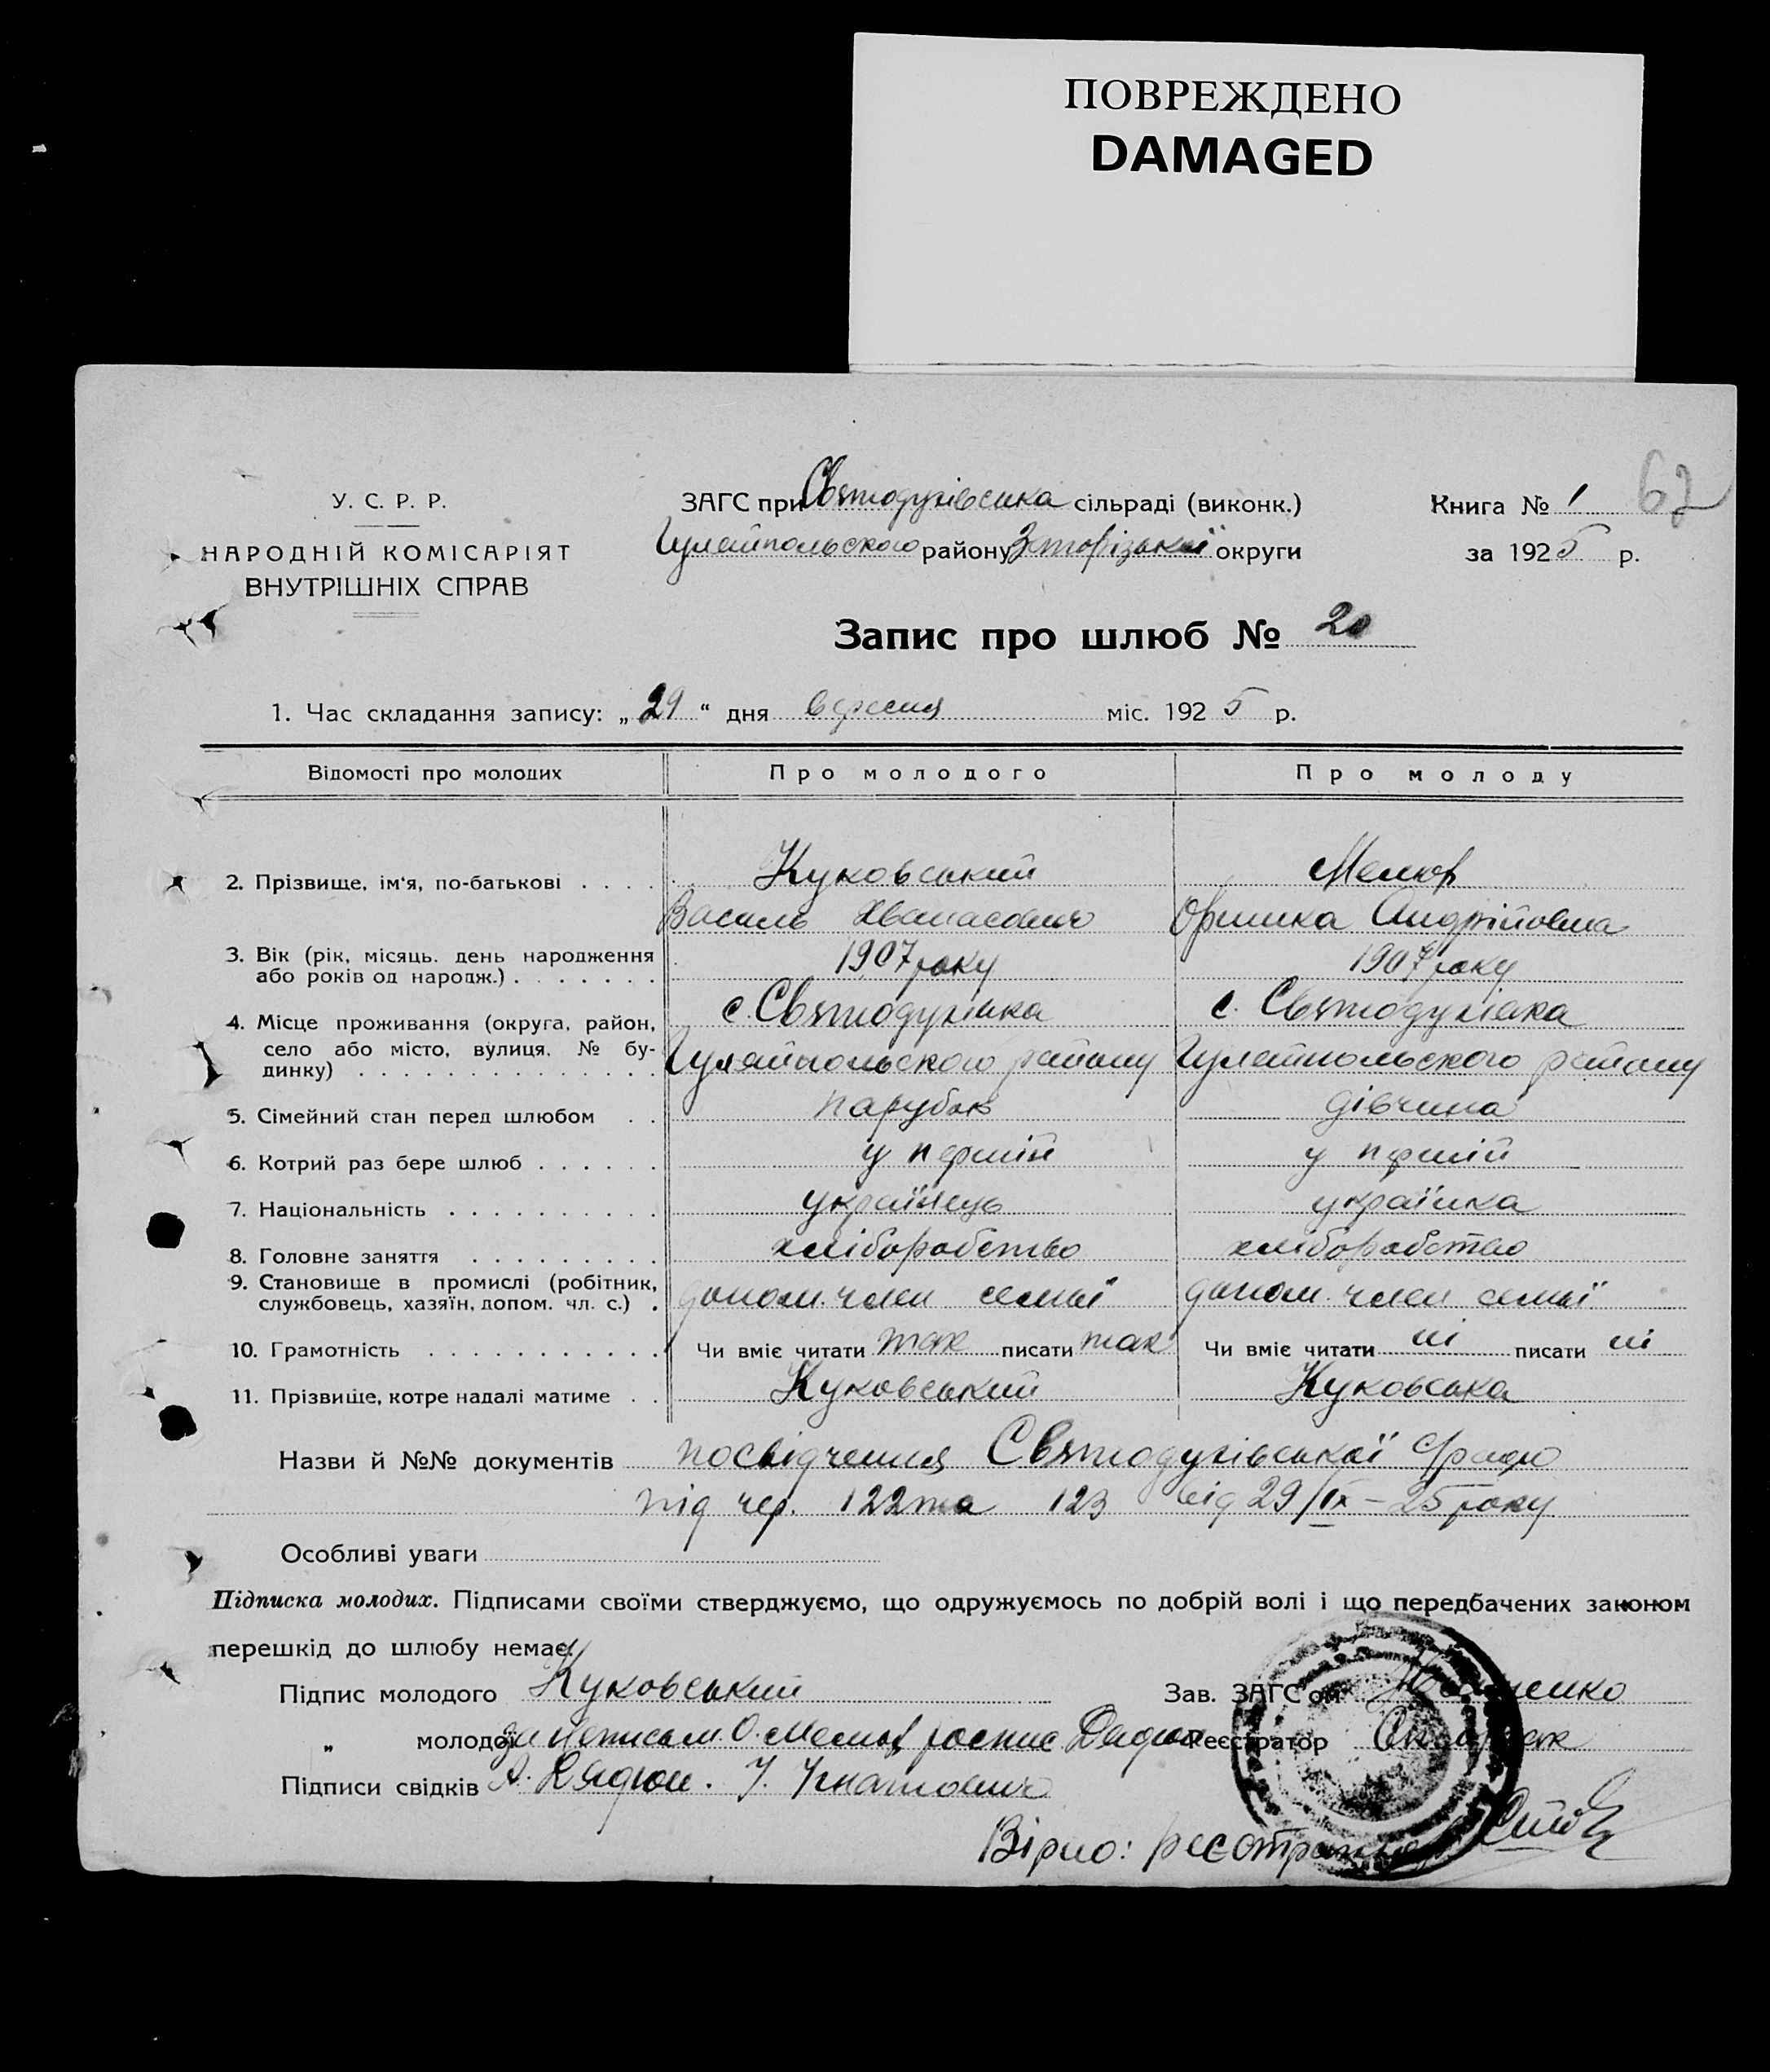 ПОВРЕЖДЕНО
DAMAGED
У. С. Р. Р.
НАРОДНІЙ КОМІСАРІЯТ
ВНУТРІШНІХ СПРАВ
ЗАГС при Святодухівська сільраді (виконк.)
Гуляйпольського району Запорізької округи
Книга № 1 62
за 1925 р.
Запис про шлюб № 20
1. Час складання запису: „29“ дня вересня міс. 1925 р.
Відомості про молодих Про молодого Про молоду
2. Прізвище, ім‘я, по-батькові . . . . Куковський
Василь Хванасович Оришка Андрійовна
3. Вік (рік, місяць, день народження або років од народж.) . . . . . . . 1907 року 1907 року
4. Місце проживання (округа, район, село або місто, вулиця, № будинку) . . . . . . . . . . . . . . с. Святодухівка с. Святодухівка
Гуляйпольського району Гуляйпольського району
5. Сімейний стан перед шлюбом . . парубок дівчина
6. Котрий раз бере шлюб . . . . . . у перший у перший
7. Національність . . . . . . . . . . українець українка
8. Головне заняття . . . . . . . . . хліборобство хліборобство
9. Становище в промислі (робітник, службовець, хазяїн, допом. чл. с.) . допом. член семьї допом. член семьї
10. Грамотність . . . . . . . . . . . Чи вміє читати так писати так Чи вміє читати ні писати ні
11. Прізвище, котре надалі матиме . . Куковський Куковська
Назви й №№ документів посвідчення Святодухівської с/ради
під чер. 122 та 123 від 29/IX – 25 року
Особливі уваги
Підписка молодих. Підписами своїми стверджуємо, що одружуємось по добрій волі і що передбачених законом
перешкід до шлюбу немає.
Підпис молодого Куковський Зав. ЗАГС'ом
„ молодої за неписьм. О. роспис Реєстратор
Підписи свідків А. У. Игнатович
Вірно: реєстратор